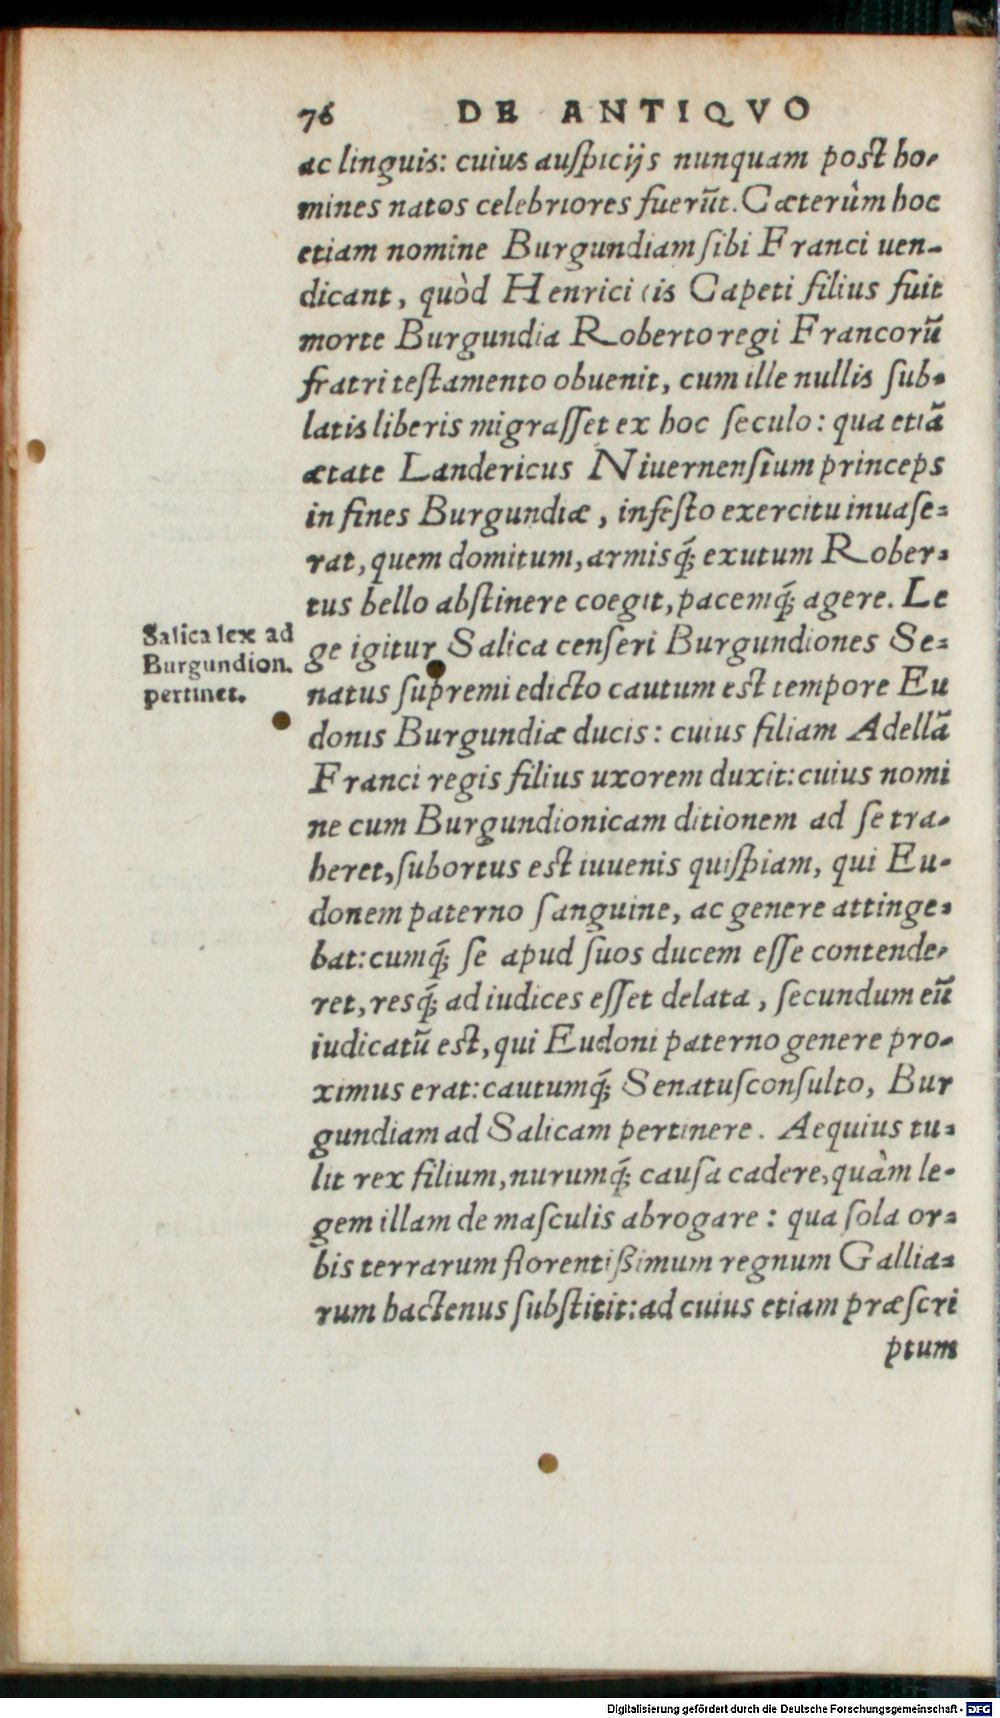 76 DE ANTIQVO
ac linguis: cuius auſpicijs nunquam poſt ho-
mines natos celebriores fuerũt. Cæterùm hoc
etiam nomine Burgundiam ſibi Franci uen-
dicant, quòd Henrici is Capeti filius fuit
morte Burgundia Roberto regi Francorũ
fratri teſtamento obuenit, cum ille nullis ſub-
latis liberis migraſſet ex hoc ſeculo: qua etiã
ætate Landericus Niuernenſium princeps
in fines Burgundiæ, infeſto exercitu inuaſe-
rat, quem domitum, armisq́; exutum Rober-
tus bello abſtinere coegit, pacemq́; agere. Le
ge igitur Salica cenſeri Burgundiones Se-
natus ſupremi edicto cautum eſt tempore Eu
donis Burgundiæ ducis: cuius filiam Adellã
Franci regis filius uxorem duxit: cuius nomi
ne cum Burgundionicam ditionem ad ſe tra-
heret, ſubortus eſt iuuenis quiſpiam, qui Eu-
donem paterno ſanguine, ac genere attinge-
bat: cumq́; ſe apud ſuos ducem eſſe contende-
ret, resq́; ad iudices eſſet delata, ſecundum eũ
iudicatũ eſt, qui Eudoni paterno genere pro-
ximus erat: cautumq́; Senatuſconſulto, Bur
gundiam ad Salicam pertinere. Aequius tu-
lit rex filium, nurumq́; cauſa cadere, quàm le-
gem illam de maſculis abrogare: qua ſola or-
bis terrarum florentißimum regnum Gallia-
rum hactenus ſubſtitit: ad cuius etiam præſcri
ptum
Salica lex ad
Burgundion.
pertinet.
Digitalisierung gefördert durch die Deutsche Forschungsgemeinschaft - DFG